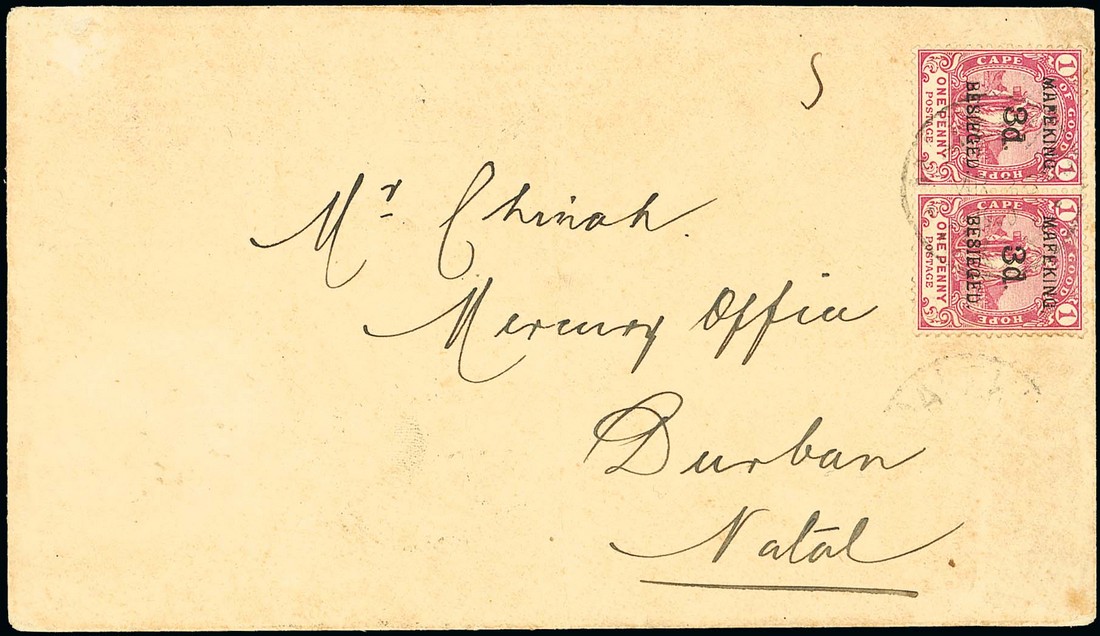 S
Mr Chinah.
Mercury Office
Durban
Natal
CAPE OF GOOD HOPE
1 1
ONE PENNY
POSTAGE
MAFEKING
3d.
BESIEGED
CAPE OF GOOD HOPE
1 1
ONE PENNY
POSTAGE
MAFEKING
3d.
BESIEGED.